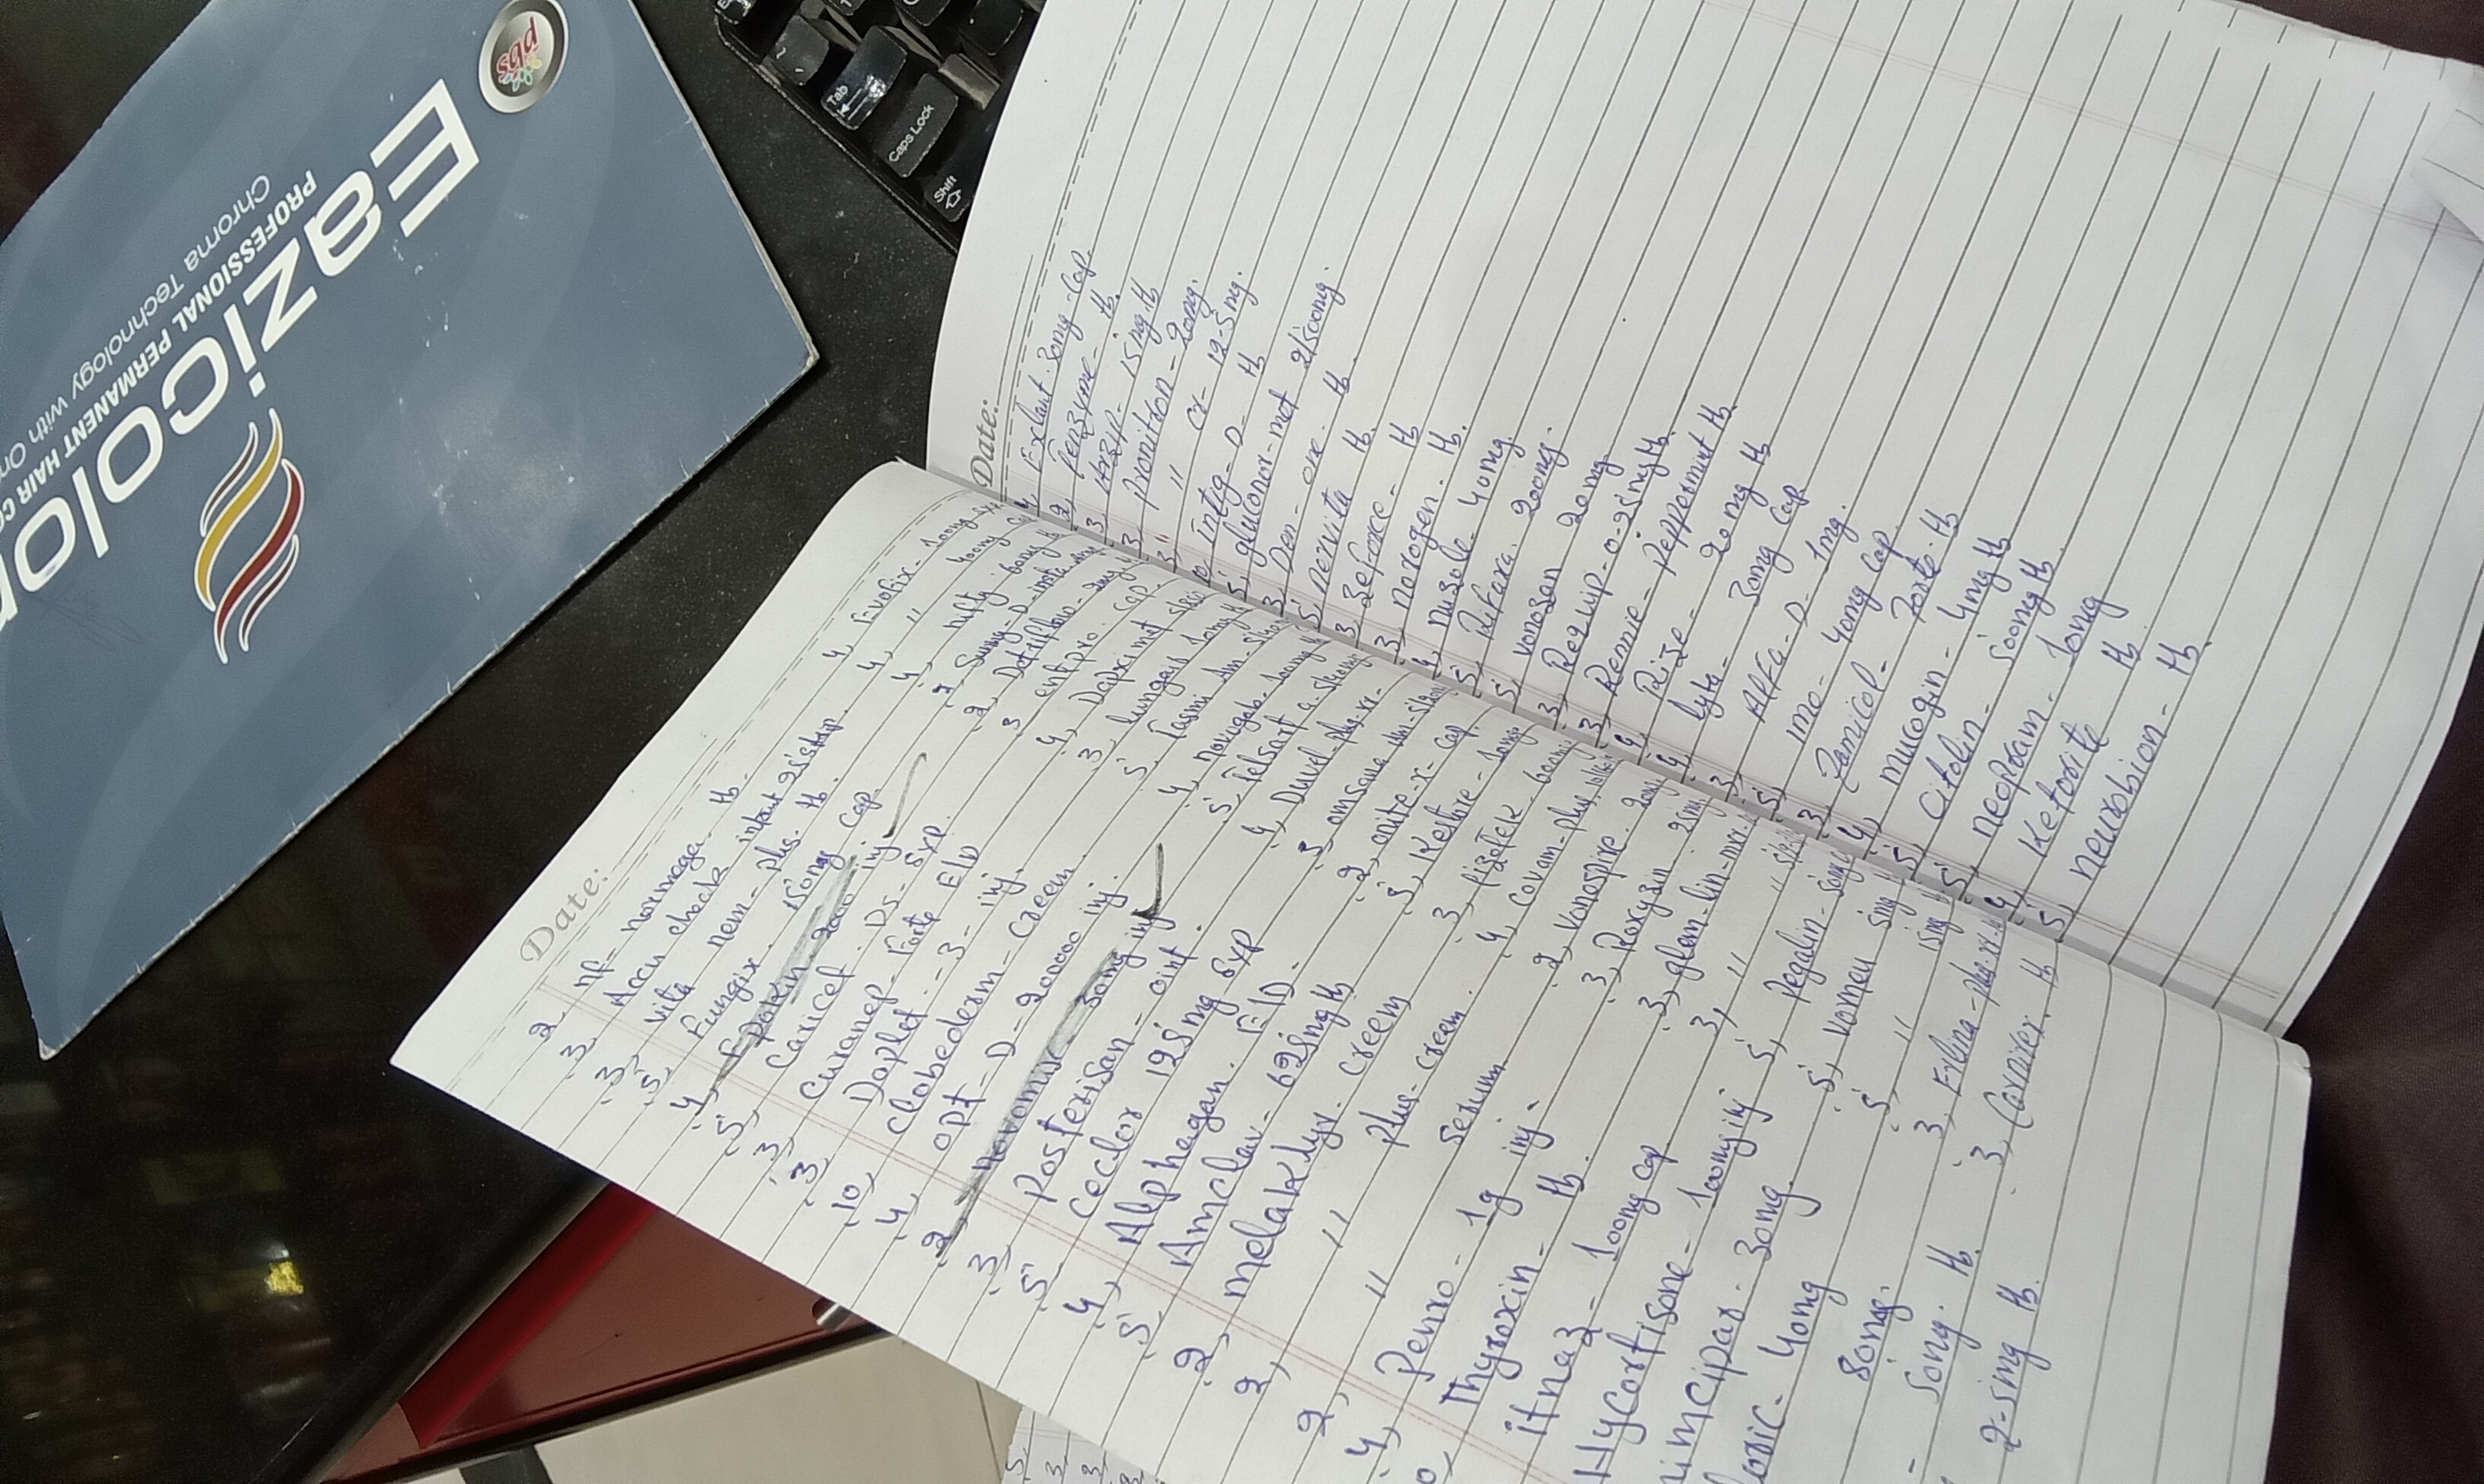 Eazicolor
PROFESSIONAL PERMANENT HAIR CO
Chroma Technology with
pbs
Tab
Caps Lock
Shift
Date:
2, NF- norvega. tb.
3, Accu check intant 25strip.
3, vita nem- plus. tb.
5, Fungix. 150mg cap.
4, Epokin 2000 inj
5, Caricef. Ds- Syp.
3, curanep- Forte E/D
3, Doplet - 3- inj.
10, clobederm- cream.
4, OPT- D- 200000 inj.
2, novomix 30mg inj
3, Posterisan- oint.
5, ceclor 125mg syp
4, Alphagan. E/D.
5, Amclav- 625mg tb
2, melaklyr. cream
2, " Plus- cream.
2, " Serum
4, Penro- 1g inj.
Thyroxin- tb.
itnaz- 100mg cap
Hycortisone- 100mg inj
imcipar. 30mg.
loric- 40mg
80mg.
- 50mg. tb.
2-5mg tb.
4, Evofix- 100mg syp.
4, " 400mg
4, nufty 60mg tb
2, Sunny- D- insta
2, Detriflow- 2mg
3 entpro. cap.
4, Dapximet
3, lungair 10mg
5, Tasmi Am-
4, novigab. 100mg
5, Telsart a.
4, Duvel- plus-xr-
3, omsana Am-
2, onite-x- cap
5, Kestine- 10mg
3, pizotek. 600mg
4, Covam- plus
2, Vonospire. 20mg
3, Roxyzin 25mg
3, glem-lin-mr.
3, " "
5, Pegalin- 50mg
5, vorneu 5mg
5, " 15mg
3, Erlina- plus
3, Caraifer. tb
Date:
4 Exlant. 30mg- cap
2, Penzyme- tb.
3 Hrzip- 15mg tb
3, Pronitron- 20mg.
3, " cr- 12-5mg.
10 intig- D- tb
5, gluconor-met 2/500mg.
3 Den- ore. tb.
5 nervita tb.
3 zeforce- tb
3 norogen. tb.
4 nuzole 40mg
5 Rifaxa. 200mg.
5, vonozan 20mg
3, Requip-0-25mg tb.
3, Rennie- Peppermint tb.
4 Rize- 20mg tb
4, lyta- 30mg cap
3, Alfa- D- 1mg.
5, imo- 40mg cap.
3, Pamicol- Forte- tb
4, mucogin- 4mg tb
5 citolin- 500mg tb.
5 neopram- 10mg
4 Ketorite tb
5 neurobion- tb.